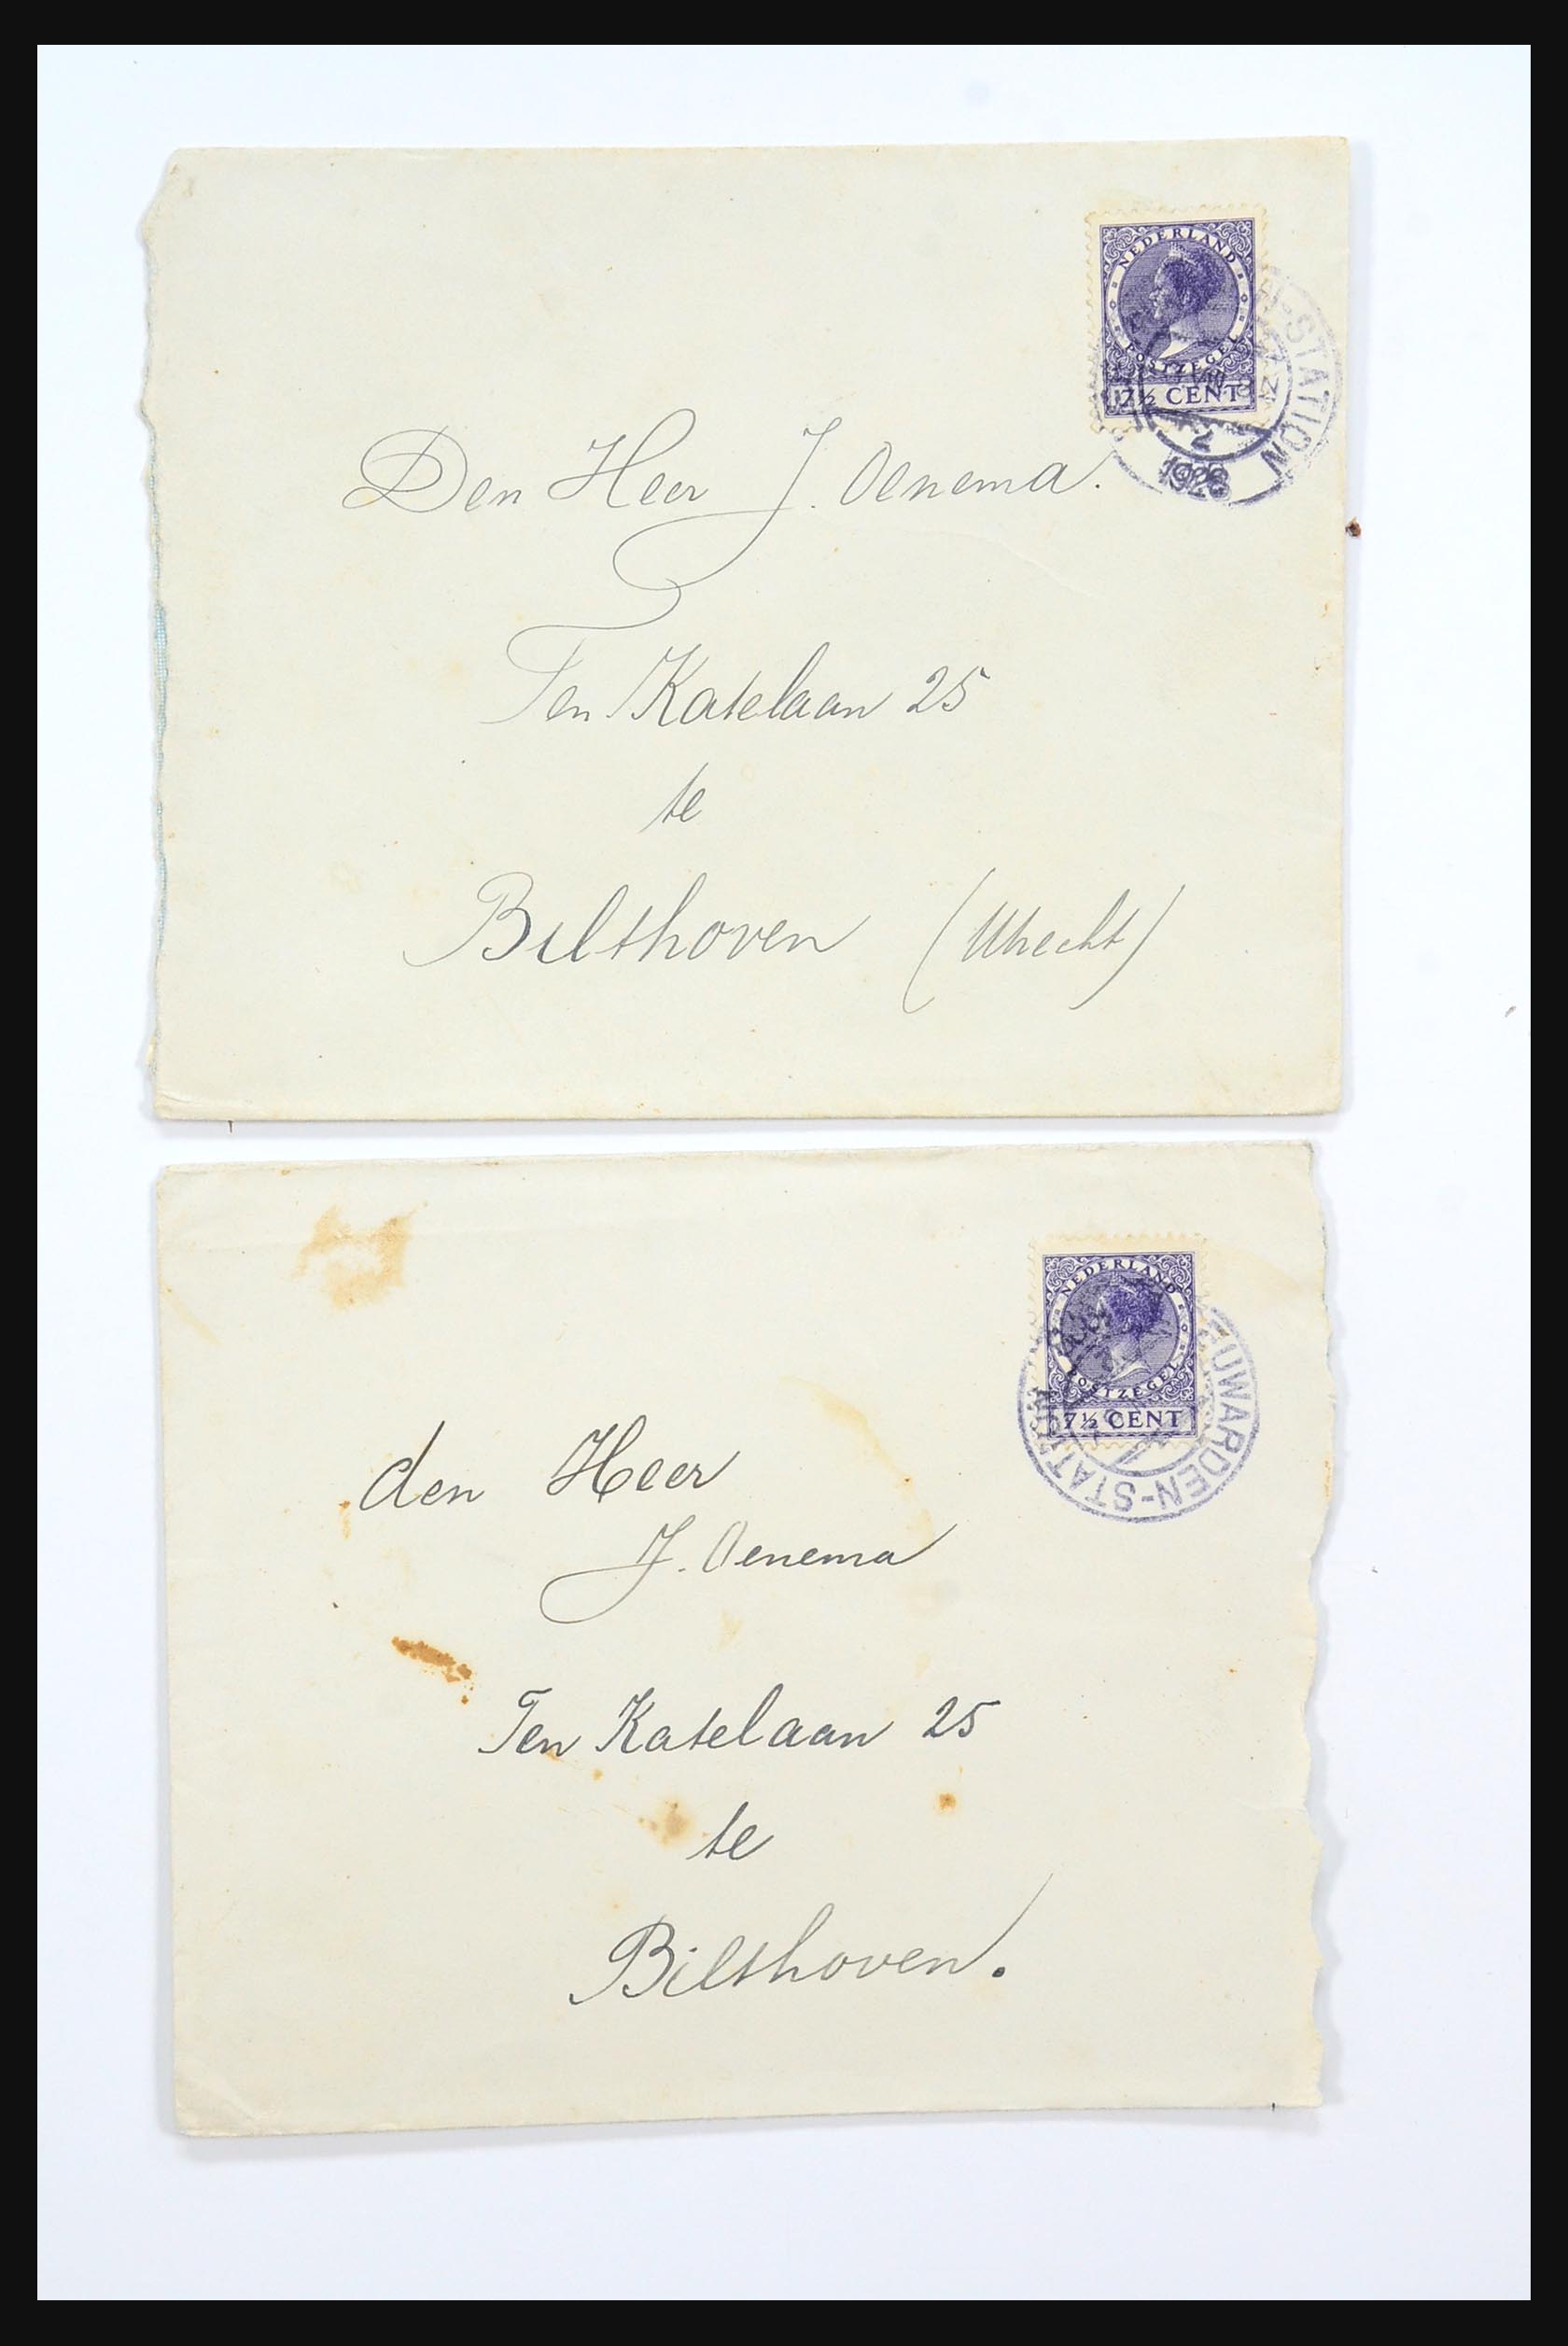 NEDERLAND
POSTZEGEL
7½ CENT
N-STATION
2
1928
Den Heer J. Oenema.
Ten Katelaan 25
te
Bilthoven (Utrecht)
NEDERLAND
POSTZEGEL
7½ CENT
EUWARDEN-STATION
den Heer
J. Oenema
Ten Katelaan 25
te
Bilthoven.